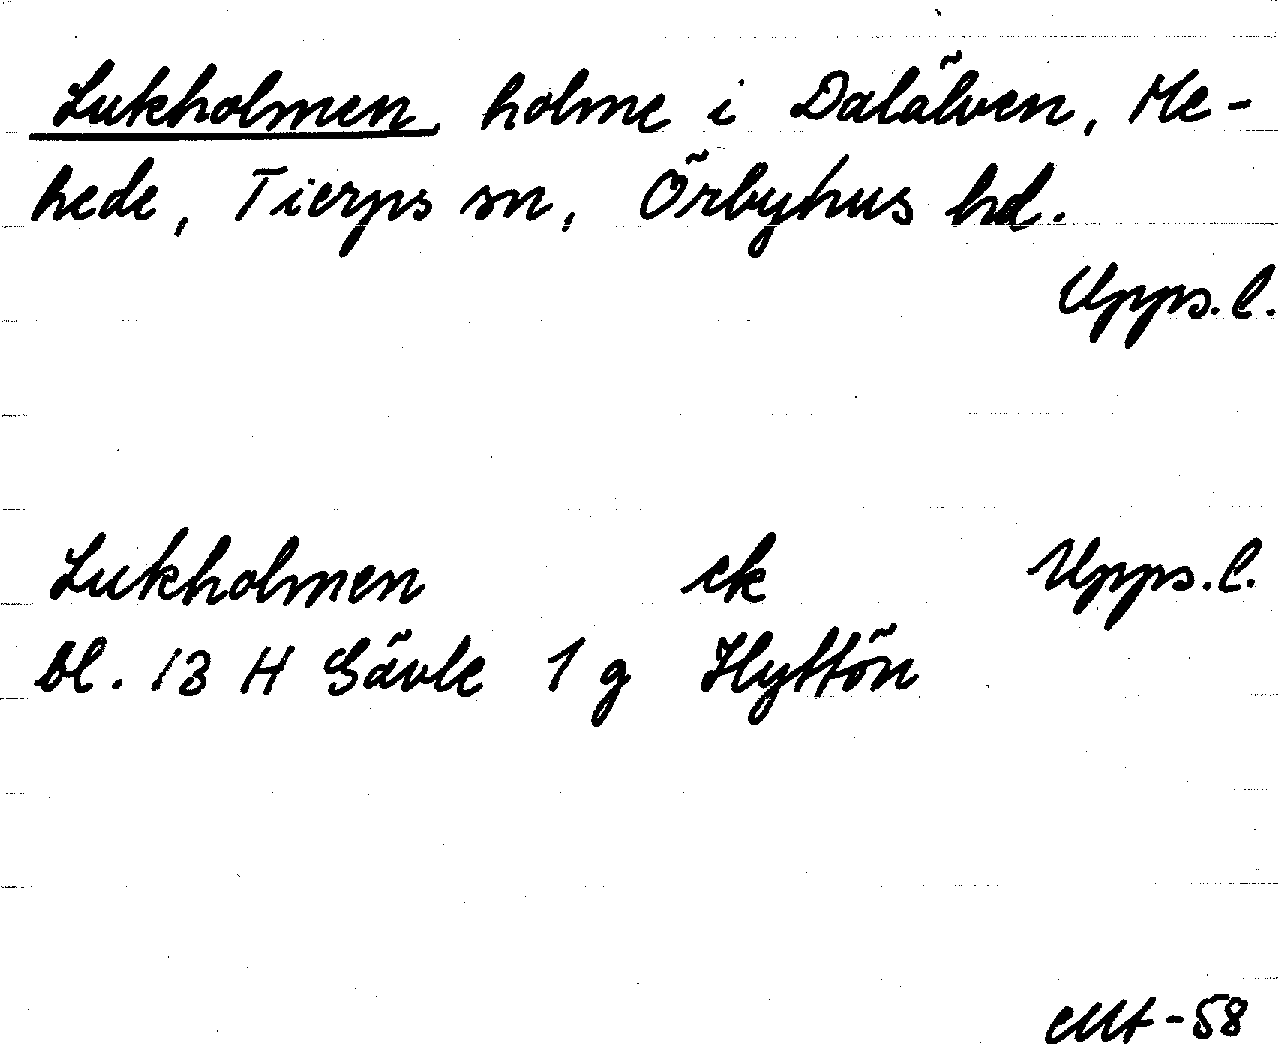 Lukholmen, holme i Dalälven, Me-
hede, Tierps sn, Örbyhus hd.
Upps.l.
Lukholmen ek Upps.l.
bl. 13 H Gävle 1 g Hyttön
-58